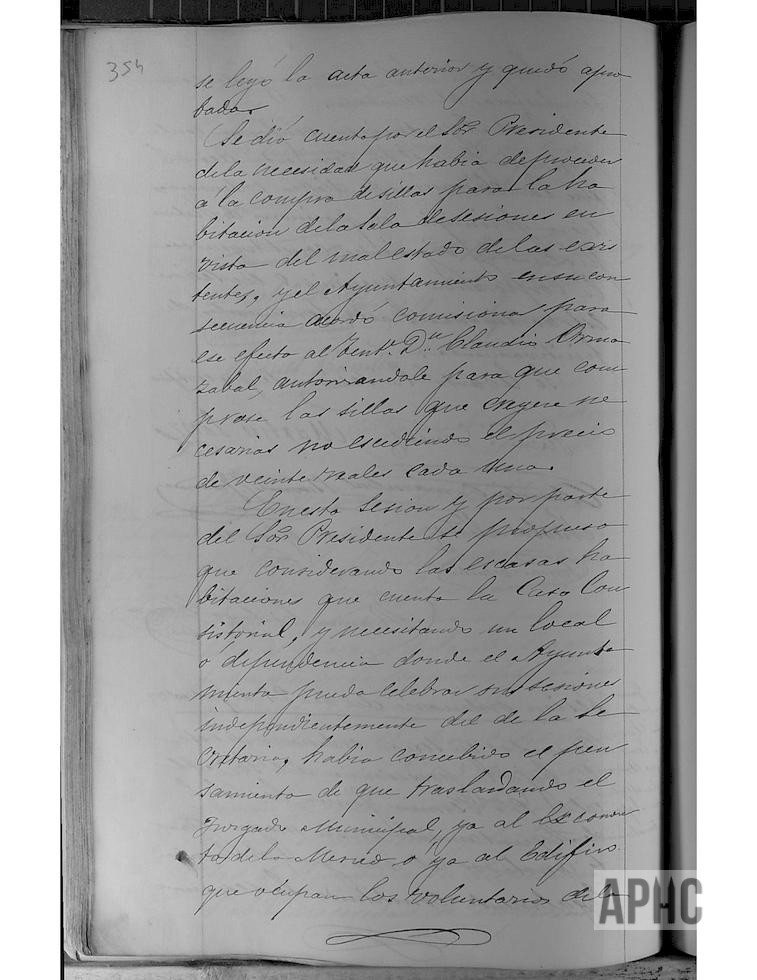 354
se leyó la acta anterior y quedó apro
bada.
Se dió cuenta por el Sor Presidente
de la necesidad que habia de proceder
a la compra de sillas para la ha
bitacion de la Sala de sesiones en
vista del mal estado de las exis
tentes, y el Ayuntamiento en su con
secuencia acordó comisionar para
ese efecto al Tente. Dn. Claudio Orma
zabal, autorizandole para que com
prase las sillas que creyere ne
cesarias no escediendo el precio
de veinte reales cada una.
En esta Sesion y por parte
del Sor Presidente se propuso
que considerando las escasas ha
bitaciones que cuenta la Casa Con
sistorial, y necesitando un local
o dependencia donde el Ayunta
miento pueda celebrar sus sesiones
independientemente del de la Se
cretaria, habia concebido el pen
samiento de que trasladando el
Juzgado Municipal, ya al Ex conven
to de la Merced o ya al Edificio
que ocupan los voluntarios de la
APHC